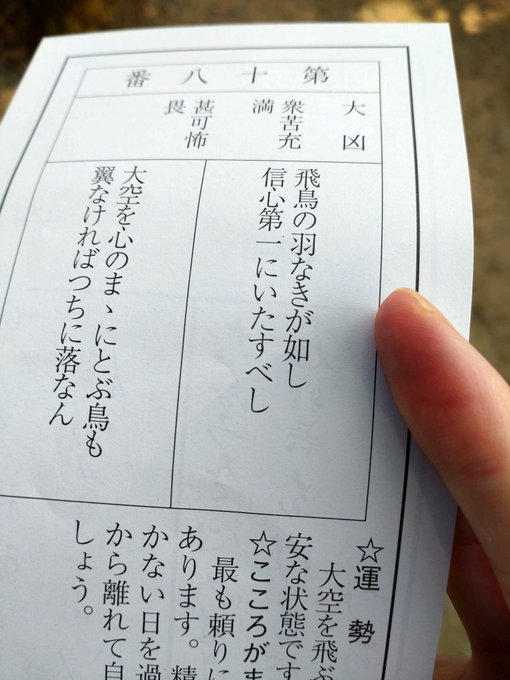 第十八番
大凶
衆苦充
満
甚可怖
畏
飛鳥の羽なきが如し
信心第一にいたすべし
大空を心のまヽにとぶ鳥も
翼なければつちに落なん
☆運勢
大空を飛ぶ
安な状態です
☆こころがま
最も頼りに
あります。精
かない日を過
から離れて自
しょう。